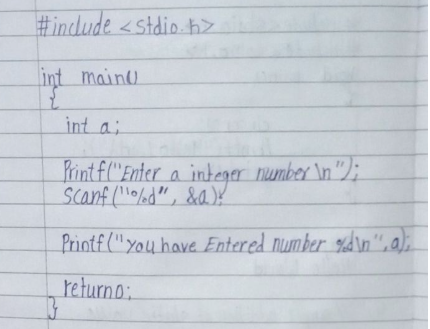 #include <stdio.h>
int main()
{
int a;
Printf("Enter a integer number \n");
Scanf("%d", &a);
Printf("you have Entered number %d\n", a);
return0;
}